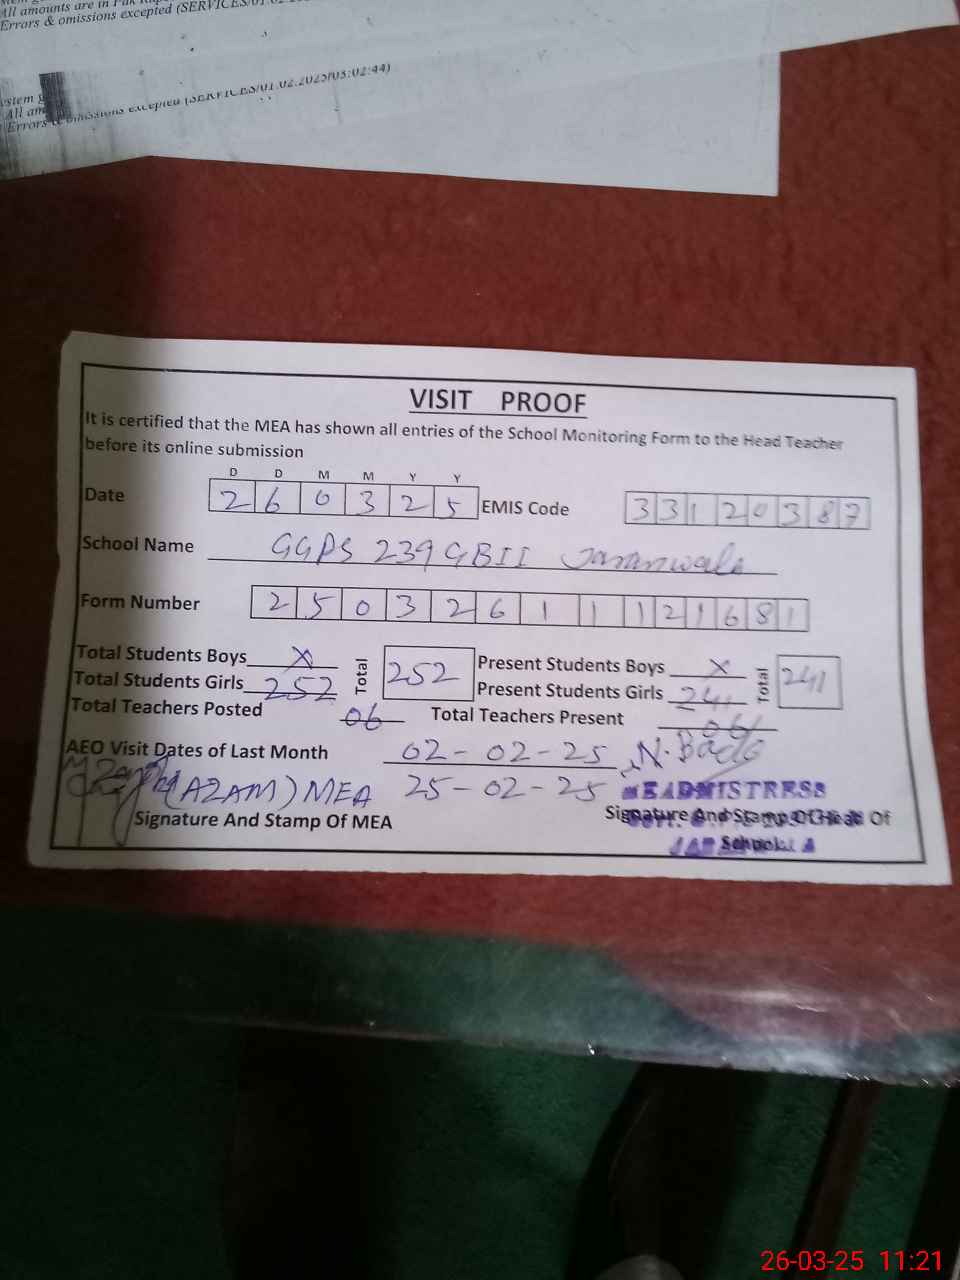 All amounts are in Pak
Errors & omissions excepted (SERVICES/01.02
ystem g
All am
Errors & omissions excepted (SERVICES/01.02.2025/03:02:44)
VISIT PROOF
It is certified that the MEA has shown all entries of the School Monitoring Form to the Head Teacher
before its online submission
D D M M Y Y
Date 2 6 0 3 2 5 EMIS Code 3 3 1 2 0 3 8 7
School Name GGPS 239 GBII Jaranwala
Form Number 2 5 0 3 2 6 1 1 1 2 1 6 8 1
Total Students Boys X Total 252 Present Students Boys X Total 241
Total Students Girls 252 Present Students Girls 241
Total Teachers Posted 06 Total Teachers Present 06
AEO Visit Dates of Last Month 02-02-25
(AZAM) MEA 25-02-25 HEADMISTRESS
Signature And Stamp Of MEA Signature And Stamp Of Head Of
School
26-03-25 11:21